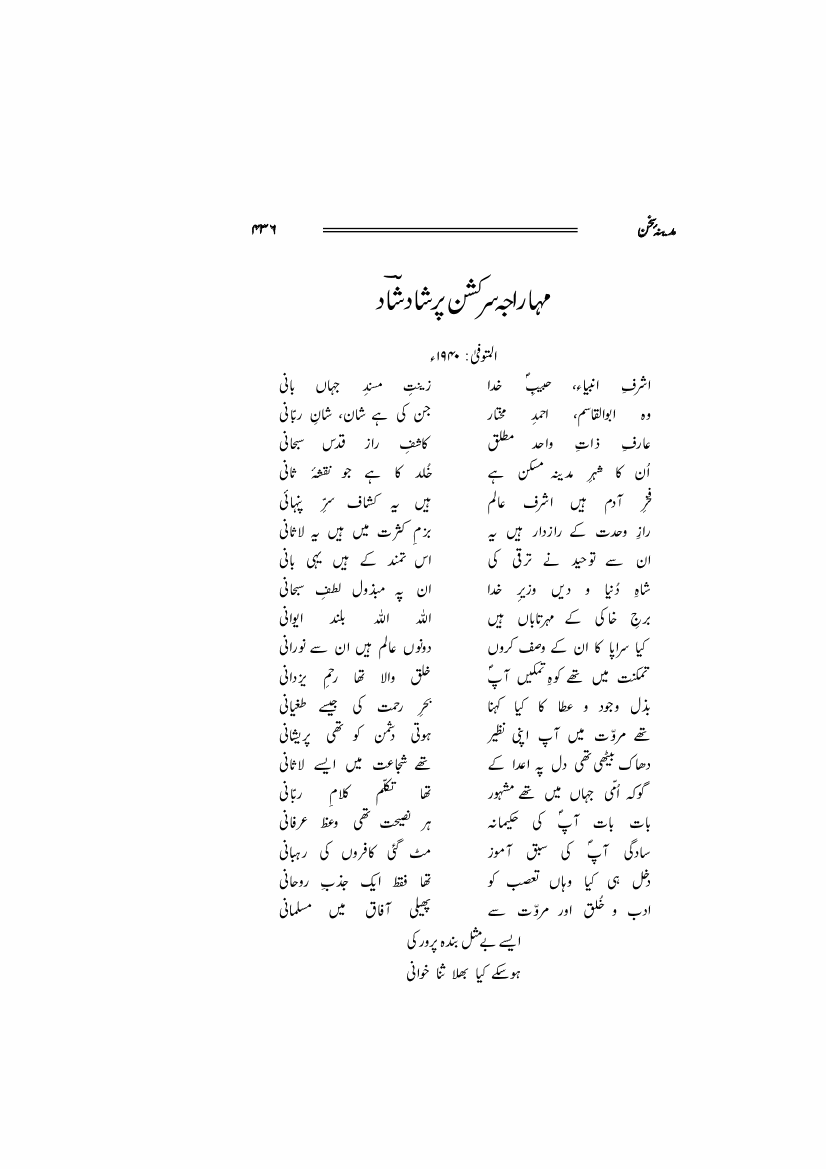 مدینۂ سخن ۴۳۶
مہاراجہ سرکشن پرشاد شادؔ
المتوفیٰ: ۱۹۴۰ء
اشرفِ انبیاء، حبیبِؐ خدا زینتِ مسندِ جہاں بانی
وہ ابوالقاسم، احمدِ مختار جن کی ہے شان، شانِ ربّانی
عارفِ ذاتِ واحد مطلق کاشفِ راز قدس سبحانی
اُن کا شہرِ مدینہ مسکن ہے خُلد کا ہے جو نقشۂ ثانی
فخرِ آدم ہیں اشرف عالم ہیں یہ کشاف سرِّ پنہائی
رازِ وحدت کے رازدار ہیں یہ بزمِ کثرت میں ہیں یہ لاثانی
ان سے توحید نے ترقی کی اس تمند کے ہیں یہی بانی
شاہِ دُنیا و دیں وزیرِ خدا ان پہ مبذول لطفِ سبحانی
برجِ خاکی کے مہرتاباں ہیں اللہ اللہ بلند ایوانی
کیا سراپا کا ان کے وصف کروں دونوں عالم ہیں ان سے نورانی
تمکنت میں تھے کوہِ تمکیں آپؐ خلق والا تھا رحمِ یزدانی
بذل وجود و عطا کا کیا کہنا بحرِ رحمت کی جیسے طغیانی
تھے مروّت میں آپ اپنی نظیر ہوتی دشمن کو تھی پریشانی
دھاک بیٹھی تھی دل پہ اعدا کے تھے شجاعت میں ایسے لاثانی
گوکہ اُمّی جہاں میں تھے مشہور تھا تکلّم کلامِ ربّانی
بات بات آپؐ کی حکیمانہ ہر نصیحت تھی وعظ عرفانی
سادگی آپؐ کی سبق آموز مٹ گئی کافروں کی رہبانی
دخل ہی کیا وہاں تعصب کو تھا فقط ایک جذبِ روحانی
ادب و خُلق اور مروّت سے پھیلی آفاق میں مسلمانی
ایسے بے مثل بندہ پرور کی
ہوسکے کیا بھلا ثنا خوانی